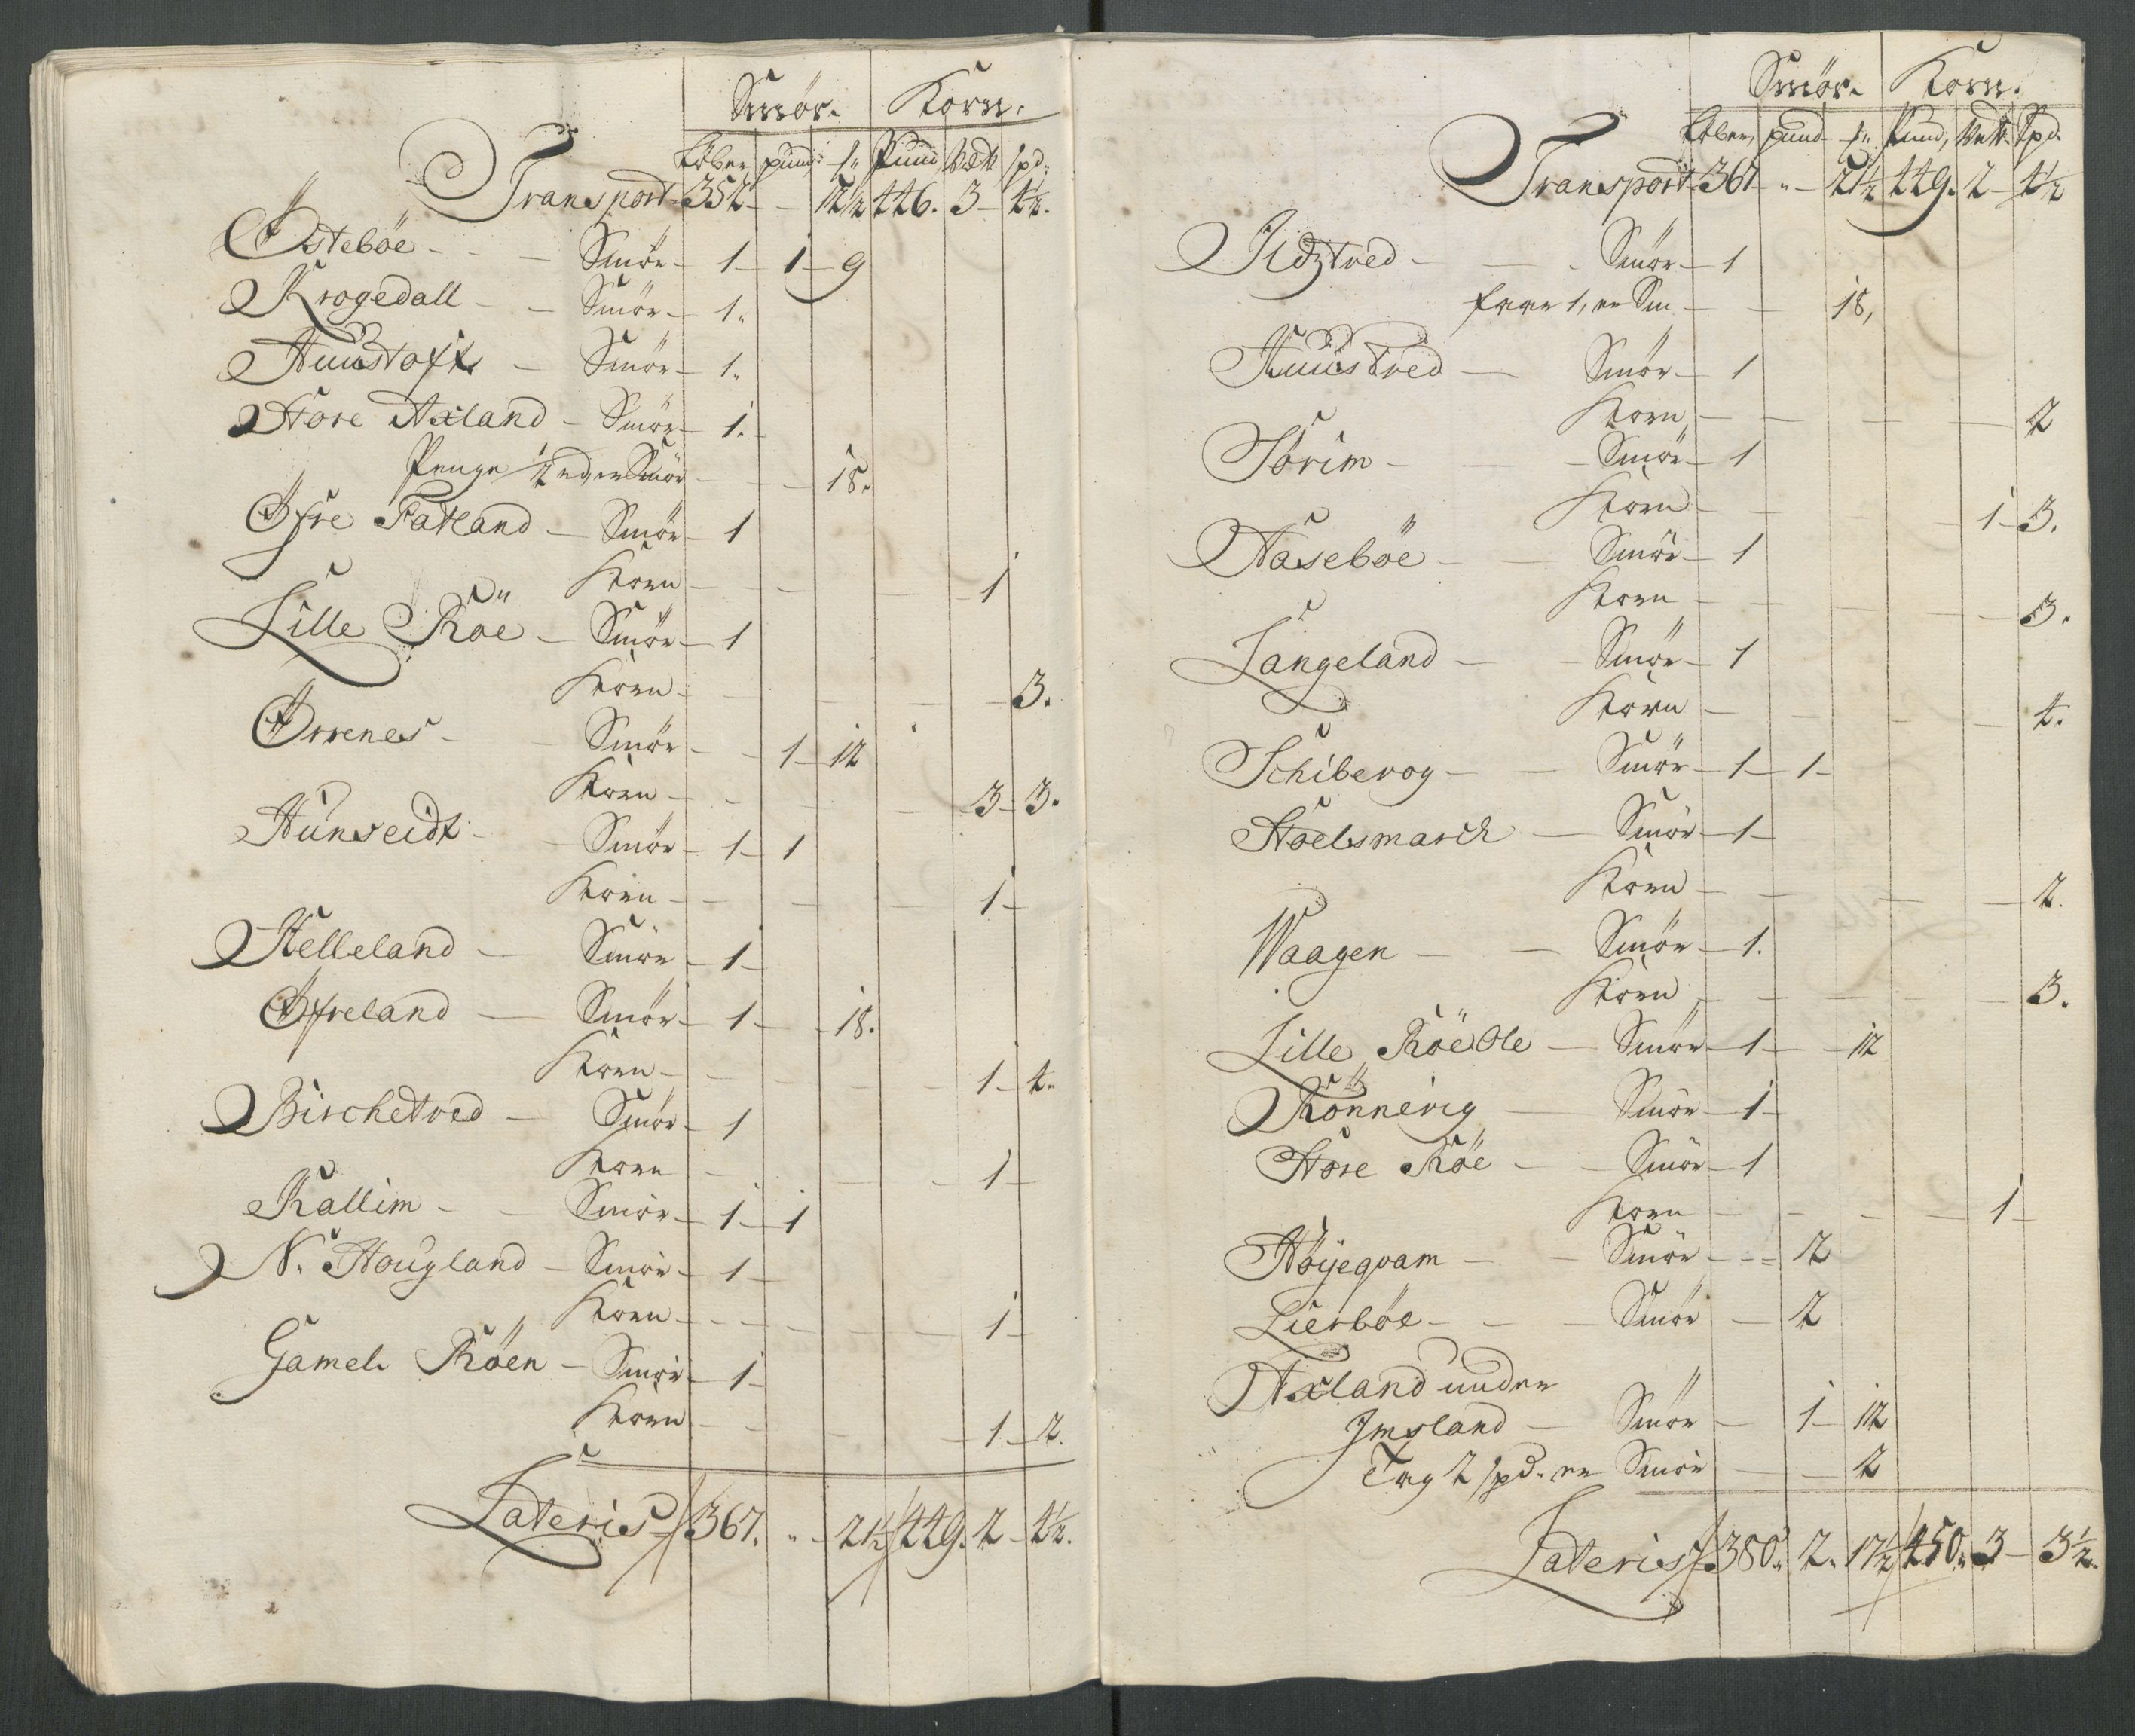 Smör. Korn.
Löber pund ℔ Pund Vett spd:
Transport 352 - - 12½ 446. 3 - 4½.
Østebøe - - - Smör - 1 - 1 - 9
Krogedall - - Smör - 1"
Huustoft - Smör - 1"
Store Axland - Smör - 1. -
Penge ½ rd, er Smör - - - 18.
Øfre Fatland - Smör - 1
Korn - - - - 1
Lille Röe - Smör - 1
Korn - - - - - - 3.
Orrenes - - Smör - - 1 - 12
Korn - - - - 3 - 3.
Hünseidt - - Smör - 1 - 1
Korn - - - - 1 -
Helleland - Smör - 1 -
Øfreland - Smör - 1 - - 18.
Korn - - - - - 1 - 4.
Birchetved - Smör - 1
Korn - - - 1 -
Kallim - - Smör - 1 - 1
N. Hougland - Smör - 1 -
Korn - - - - - 1 -
Gamel Röen - Smör - 1 -
Korn - - - - 1 - 2.
Lateris 367. " - 21½ 449. 2 - 4½.
Smör. Korn.
Löber, pund ℔ Pund, Vett. Spd.
Transport 367 - " - 21½ 449. 2 - 4½
Ildztved - - - Smör - 1
faar 1, er Sm - - 18,
Kuustved - Smör - 1
Korn - - - - 2
Sörim - - - Smör - 1
Korn - - - - 1 - 3.
Nasebøe - - Smör - 1
Korn - - - - - 3.
Langeland - - Smör - 1
Korn - - - - - 4.
Schibevog - - Smör - 1 - 1 -
Stoelsmarch - Smör - 1 -
Korn - - - - 2.
Waagen - - Smör - 1.
Korn - - - - - 3.
Lille Röedle - Smör - 1 - - 12
Rönnevig - Smör - 1 -
Store Röe - - Smör - 1
Korn - - - - 1 -
Höyeqvam - - Smör - - - 2
Lierböe - - - Smör - 2
Axland under
Imsland - Smör - 1 - 12
Tag 2 spd. er Smör - - 2
Lateris 380" 2" 17½ 450" 3 - 3½.